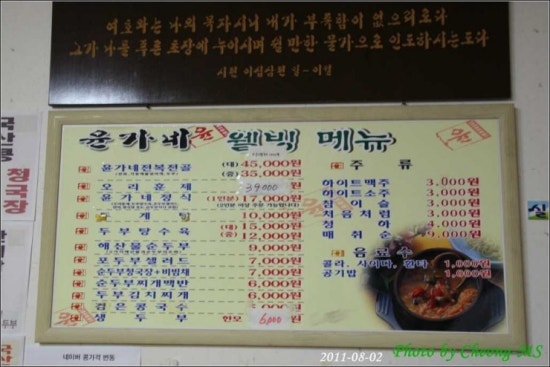 여호와는 나의 목자시니 내가 부족함이 없으리로다
그가 나를 푸른 초장에 누이시며 쉴 만한 물가으로 인도하시는도다
시편 이십삼편 일-이절
윤가네 웰빅 메뉴
윤가네전복전골 (대) 45,000원
(중) 35,000원
오리훈제 34000
윤가네정식 (1인분) 17,000원
계탕 10,000원
두부탕수육 (대) 15,000원
(중) 12,000원
해산물순두부 9,000원
모두부샐러드 7,000원
순두부청국장+비빔재 7,000원
순두부찌개백반 6,000원
두부김치찌개 6,000원
검은콩국수 5,000원
생두부 한모 6,000원
주류
하이트맥주 3,000원
하이트소주 3,000원
참이슬 3,000원
처음처럼 3,000원
청하 4,000원
매취순
음료수
콜라, 사이다, 환타 1,000원
공기밥 1,000원
정국장
두부
네이버 콩가격 변동
2011-08-02
Photo by Cheong-MS